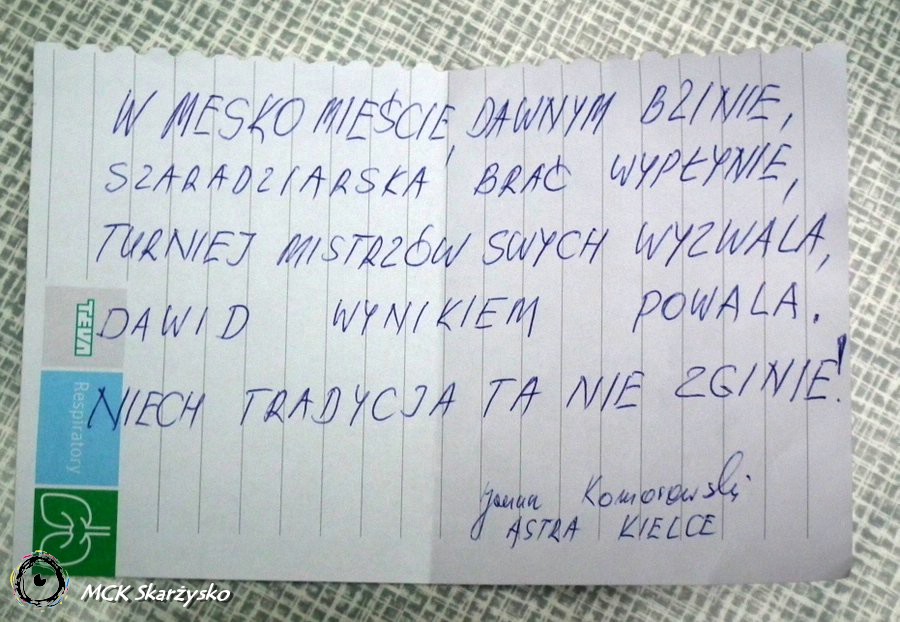 W MESKO MIEŚCIE, DAWNYM BZINIE,
SZARADZIARSKA BRAĆ WYPŁYNIE,
TURNIEJ MISTRZÓW SWYCH WYZWALA,
DAWID WYNIKIEM POWALA.
NIECH TRADYCJA TA NIE ZGINIE!
Komorowski
ASTRA KIELCE
TEVA
Respiratory
MCK Skarżysko